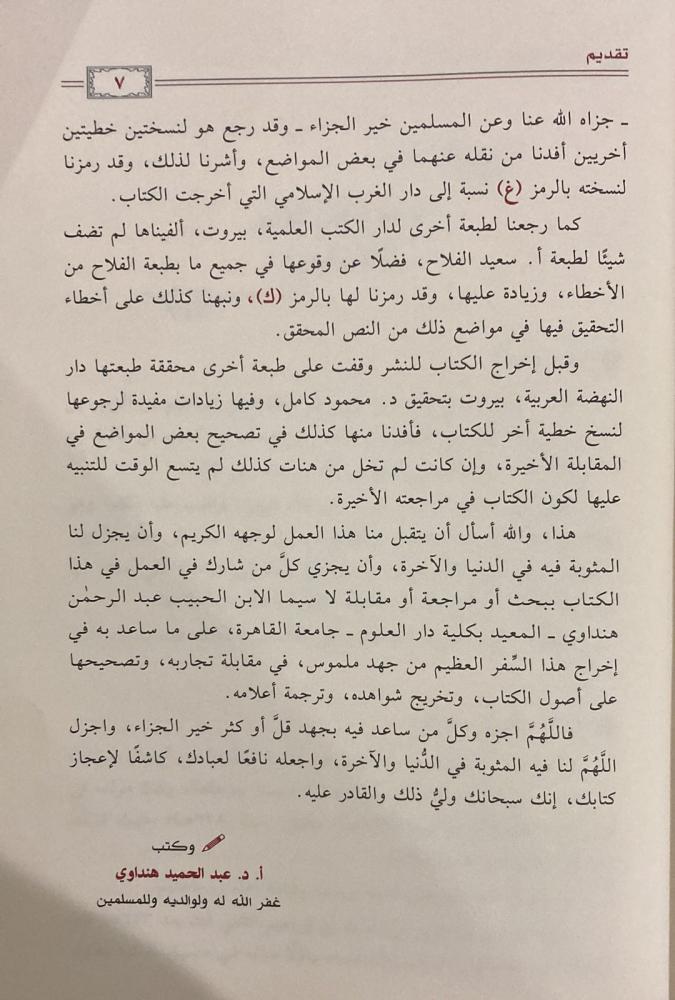 تقديم
٧
ـ جزاه الله عنا وعن المسلمين خير الجزاء ـ وقد رجع هو لنسختين خطيتين
أخريين أفدنا من نقله عنهما في بعض المواضع، وأشرنا لذلك، وقد رمزنا
لنسخته بالرمز (غ) نسبة إلى دار الغرب الإسلامي التي أخرجت الكتاب.
كما رجعنا لطبعة أخرى لدار الكتب العلمية، بيروت، ألفيناها لم تضف
شيئًا لطبعة أ. سعيد الفلاح، فضلًا عن وقوعها في جميع ما بطبعة الفلاح من
الأخطاء، وزيادة عليها، وقد رمزنا لها بالرمز (ك)، ونبهنا كذلك على أخطاء
التحقيق فيها في مواضع ذلك من النص المحقق.
وقبل إخراج الكتاب للنشر وقفت على طبعة أخرى محققة طبعتها دار
النهضة العربية، بيروت بتحقيق د. محمود كامل، وفيها زيادات مفيدة لرجوعها
لنسخ خطية أخر للكتاب، فأفدنا منها كذلك في تصحيح بعض المواضع في
المقابلة الأخيرة، وإن كانت لم تخل من هنات كذلك لم يتسع الوقت للتنبيه
عليها لكون الكتاب في مراجعته الأخيرة.
هذا، والله أسأل أن يتقبل منا هذا العمل لوجهه الكريم، وأن يجزل لنا
المثوبة فيه في الدنيا والآخرة، وأن يجزي كلَّ من شارك في العمل في هذا
الكتاب ببحث أو مراجعة أو مقابلة لا سيما الابن الحبيب عبد الرحمٰن
هنداوي ـ المعيد بكلية دار العلوم ـ جامعة القاهرة، على ما ساعد به في
إخراج هذا السِّفر العظيم من جهد ملموس، في مقابلة تجاربه، وتصحيحها
على أصول الكتاب، وتخريج شواهده، وترجمة أعلامه.
فاللَّهُمَّ اجزه وكلَّ من ساعد فيه بجهد قلَّ أو كثر خير الجزاء، واجزل
اللَّهُمَّ لنا فيه المثوبة في الدُّنيا والآخرة، واجعله نافعًا لعبادك، كاشفًا لإعجاز
كتابك، إنك سبحانك وليُّ ذلك والقادر عليه.
وكتب
أ. د. عبد الحميد هنداوي
غفر الله له ولوالديه وللمسلمين